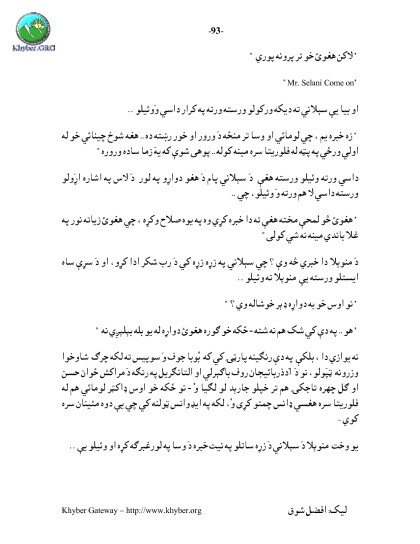 Khyber.ORG
-93-
" لاکن هغوئ خو تر پرونه پوري "
" Mr. Selani Come on"
او بيا يې سېلاني ته ډيکه ورکولو ورسته ورته په کرار داسې وَوئيلو ..
" زه خبره يم ، چې لومائي او وسا تر منځه دَ ورور او خور رښته ده.. هغه شوخ چينائي خو له
اولې ورځې په پټه له فلوريتا سره مينه کوله.. پوهى شوې که يۀ زما ساده وروره "
داسې ورته وئيلو ورسته هغې دَ سېلاني پام دَ هغو دواړو په لور دَ لاس په اشاره اړَولو
ورسته داسې لا هم ورته وَ وئيلو ، چې ..
" هغوئ څو لمحې مخته هغې ته دا خبره کړې وه په يوه صلاح وکړه ، چې هغوئ زياته نور په
غلا باندې مينه نه شي کولى "
دَ منوپلا دا خبرې څه وې ؟ چې سېلاني په زړه زړه کې دَ رب شکر ادا کړو ، او دَ سړې ساه
ايستلو ورسته يې منوپلا ته وئيلو ..
" نو اوس خو به دواړه ډېر خوشاله وي ؟ "
" هو .. په دې کې شک هم نه شته - ځکه خو ګوره هغوئ دواړه له يو بله بېلېږي نه "
نه يوازې دا ، بلکې په دې رنګينه پارټۍ کې که يُوبا جوف وَ سوېيس ته لکه چرګ شاوخوا
وزرونه ټپولو ، نو دَ آذدربائيجان روف باګيرلي او التانګريل په رنګه دَ مراکش ځوان حسن
او ګل چهره تاجکۍ هم تر خپلو جارېد لو لګيا وُ - نو ځکه خو اوس ډاکټر لومائي هم له
فلوريتا سره هغسې ډانس چمتو کړى وُ، لکه په ايډوانس ټولنه کې چې يې دوه مئينان سره
کوي -
يو وخت منوپلا دَ سېلاني دَ زړه ساتلو په نيت خبره دَ وسا په لور غبرګه کړه او وئيلو يې ..
Khyber Gateway – http://www.khyber.org
ليک: افضل شوق